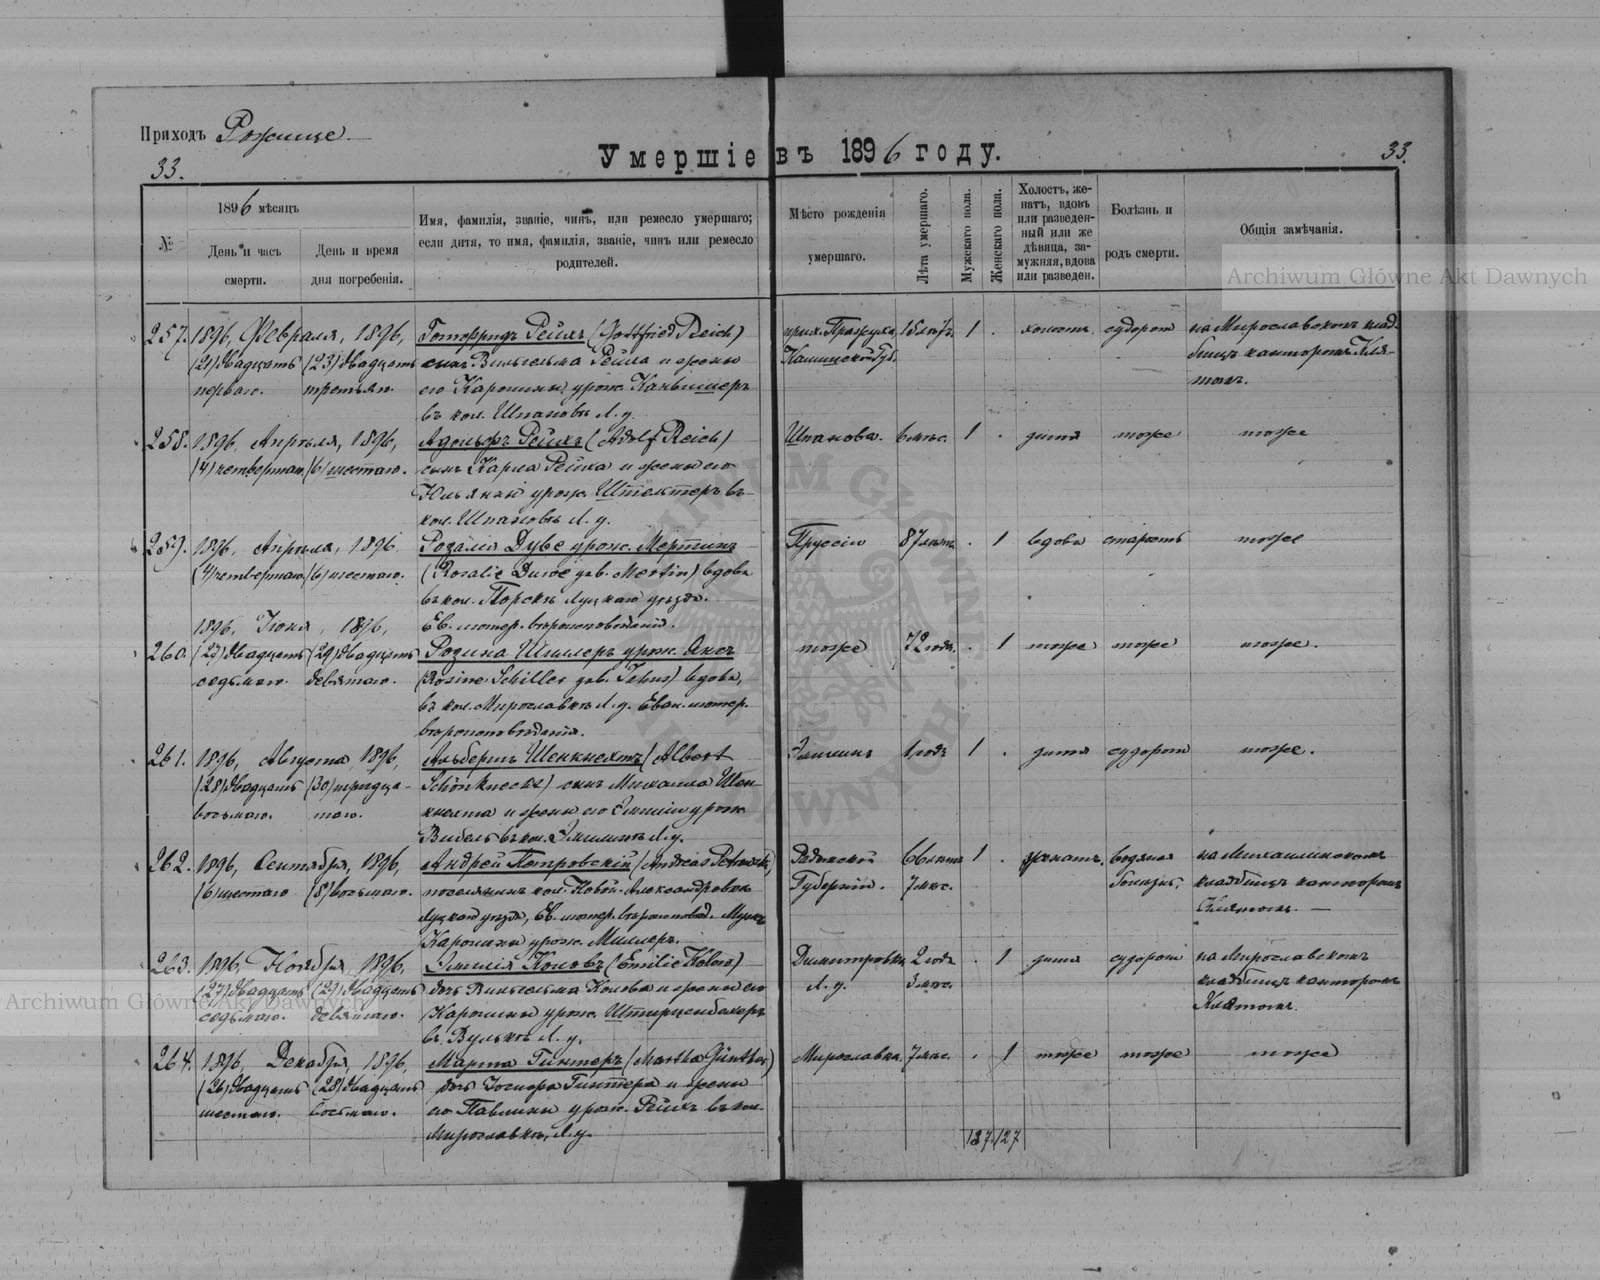 Приходъ Рожище
33.
Умершіе въ 1896 году.
33.
№
1896 мѣсяцъ
День и часъ смерти.
День и время дня погребенія.
Имя, фамилія, званіе, чинъ, или ремесло умершаго;
если дитя, то имя, фамилія, званіе, чинъ или ремесло
родителей.
Мѣсто рожденія
умершаго.
Лѣта умершаго.
Мужскаго пола.
Женскаго пола.
Холостъ, же-
натъ, вдовъ
или разведен-
ный или же
дѣвица, за-
мужняя, вдова
или разведен.
Болѣзнь и
родъ смерти.
Общія замѣчанія.
Archiwum Główne Akt Dawnych
257. 1896, Февраля, 1896, Готфридъ Рейхъ (Gottfried Reich) 1 . судорот на Мирославскомъ клад-
(21) двадцать (23) двадцать сынъ Вильгельма Рейха и жены Калишской Губ. бищѣ канторомъ Кля-
перваго. третьяго. его Каролины урож. томъ.
въ кол. Шпановъ Л. у.
258. 1896, Апрѣля, 1896, Адольфъ Рейхъ (Adolf Reich) Шпановъ. 6 мѣс. 1 . дитя тоже тоже
(4) четвертаго (6) шестаго. сынъ Карла Рейха и жены его
Юльянны урож. Штектеръ въ
кол. Шпановъ Л. у.
259. 1896, Апрѣля, 1896 Розалія Дуве урож. Мертинъ Пруссіи 87 лѣтъ . 1 вдова старость тоже
(4) четвертаго (6) шестаго. (Rosalie Duwe geb. Mertin) вдова
въ кол. Торскъ Луцкаго уѣзда.
1896, Іюня, 1896, Ев. лютер. вѣроисповѣданія.
260. (27) двадцать (29) двадцать Розина Шиллеръ урож. Янсъ тоже 72 года. . 1 тоже тоже тоже.
седьмаго. девятаго. (Rosine Schiller geb. Jahns) вдова,
въ кол. Мирославкѣ Л. у. Еван. лютер.
вѣроисповѣданія.
261. 1896, Августа, 1896, Альбертъ Шенкнехтъ (Albert 1 годъ 1 . дитя судорот тоже.
(28) двадцать (30) тридца- Schönknecht) сынъ Михаила Шен-
восьмаго. таго. кнехта и жены его Эмиліи урож.
въ кол. Л. у.
262. 1896, Сентября, 1896, Андрей Петровскій (Andreas Petrowski) Радомской 66 лѣтъ 1 . женатъ. водяная на Михаилинскомъ
(6) шестаго (8) восьмаго. поселянинъ кол. Новой-Александровки Губерніи. 7 мѣс. болѣзнь. кладбищѣ канторомъ
Луцкаго уѣзда, Ев. лютер. вѣроисповѣд. Мужъ Клятомъ. —
Каролины урож. Миллеръ.
263. 1896, Ноября, 1896, Эмилія Коловъ (Emilie Kolow) Димитровка 2 года . 1 дитя судорот на Мирославскомъ
(27) двадцать (29) двадцать дочь Вильгельма Колова и жены его Л. у. 3 мѣс. кладбищѣ канторомъ
седьмаго. девятаго. Каролины урож. Клятомъ.
въ Вулькѣ Л. у.
Archiwum Główne Akt Dawnych
264. 1896, Декабря, 1896, Марта Гинтеръ (Martha Günther) Мирославка. 7 мѣс. . 1 тоже тоже тоже
(26) двадцать (28) двадцать дочь Гинтера и жены
шестаго. восьмаго. его Павлины урож. Рейхъ въ кол.
Мирославкѣ, Л. у.
137 127